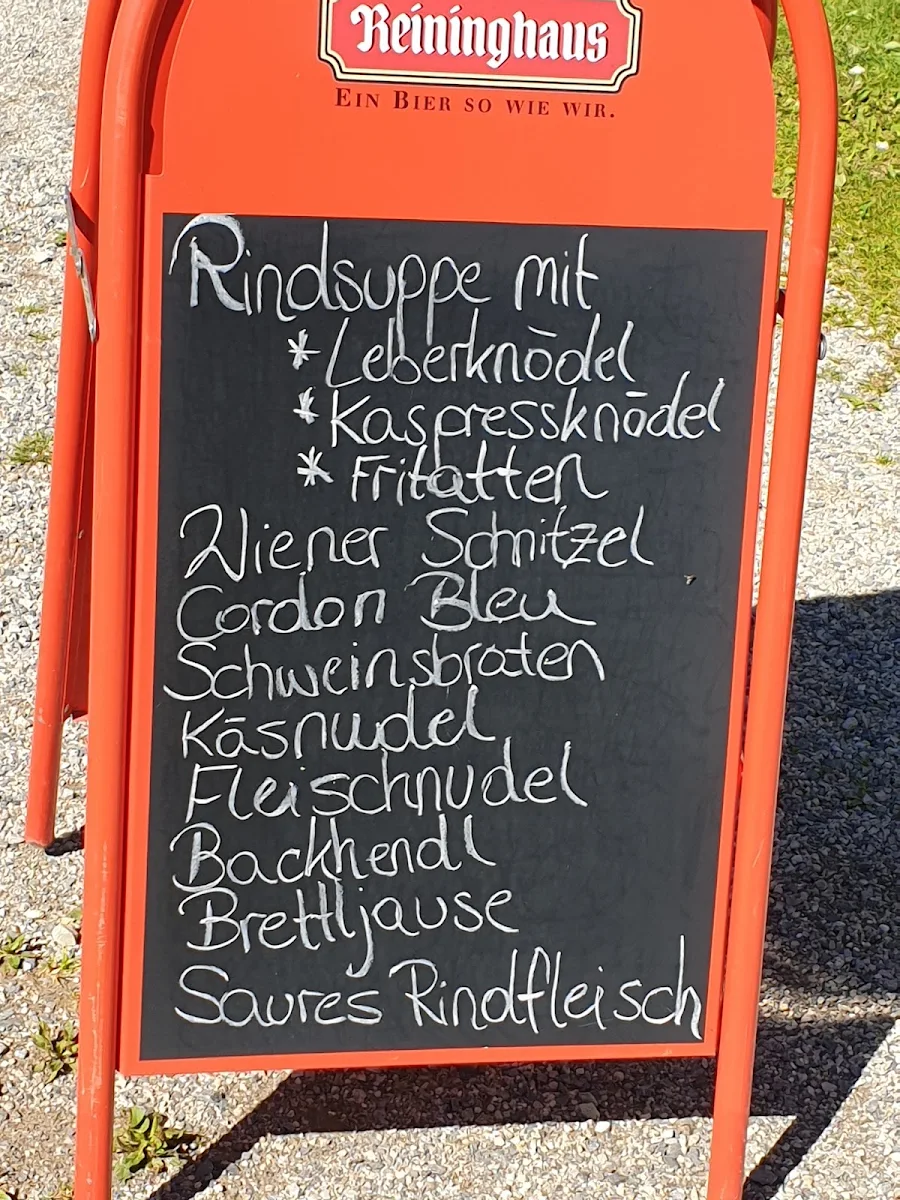 Reininghaus
EIN BIER SO WIE WIR.
Rindsuppe mit
* Leberknödel
* Kaspressknödel
* Fritatten
Wiener Schnitzel
Cordon Bleu
Schweinsbraten
Käsnudel
Fleischnudel
Backhendl
Brettljause
Saures Rindfleisch